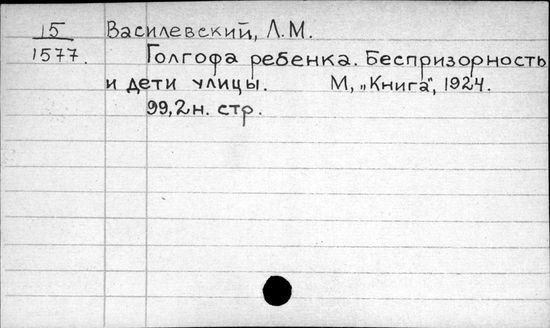 15 Василевский, Л.М.
1577. Голгофа ребенка. Беспризорность
и дети улицы. М, „Книга", 1924.
99,2н. стр.